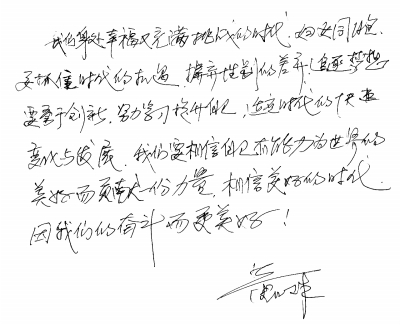 我们身处幸福又充满挑战的时代，妇女同胞
要抓住时代的机遇，摒弃性别的差异，追逐梦想
要勇于创新，努力学习提升自己，适应时代的快速
变化与发展，我们要相信自己有能力为世界的
美好而贡献一份力量，相信美好的时代
因我们的奋斗而更美好！